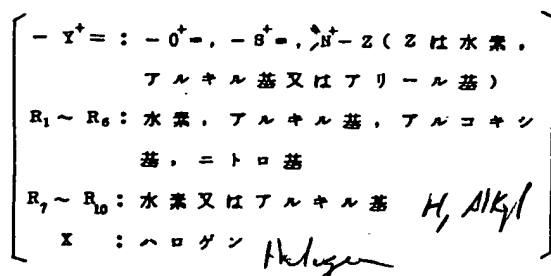 - Y⁺= : - O⁺=, - S⁺=, >N⁺- Z ( Z は 水 素 ,
ア ル キ ル 基 又 は ア リ ー ル 基 )
R₁ ~ R₆ : 水 素 , ア ル キ ル 基 , ア ル コ キ シ
基 , ニ ト ロ 基
R₇ ~ R₁₀ : 水 素 又 は ア ル キ ル 基 H, Alkyl
X : ハ ロ ゲ ン Halogen